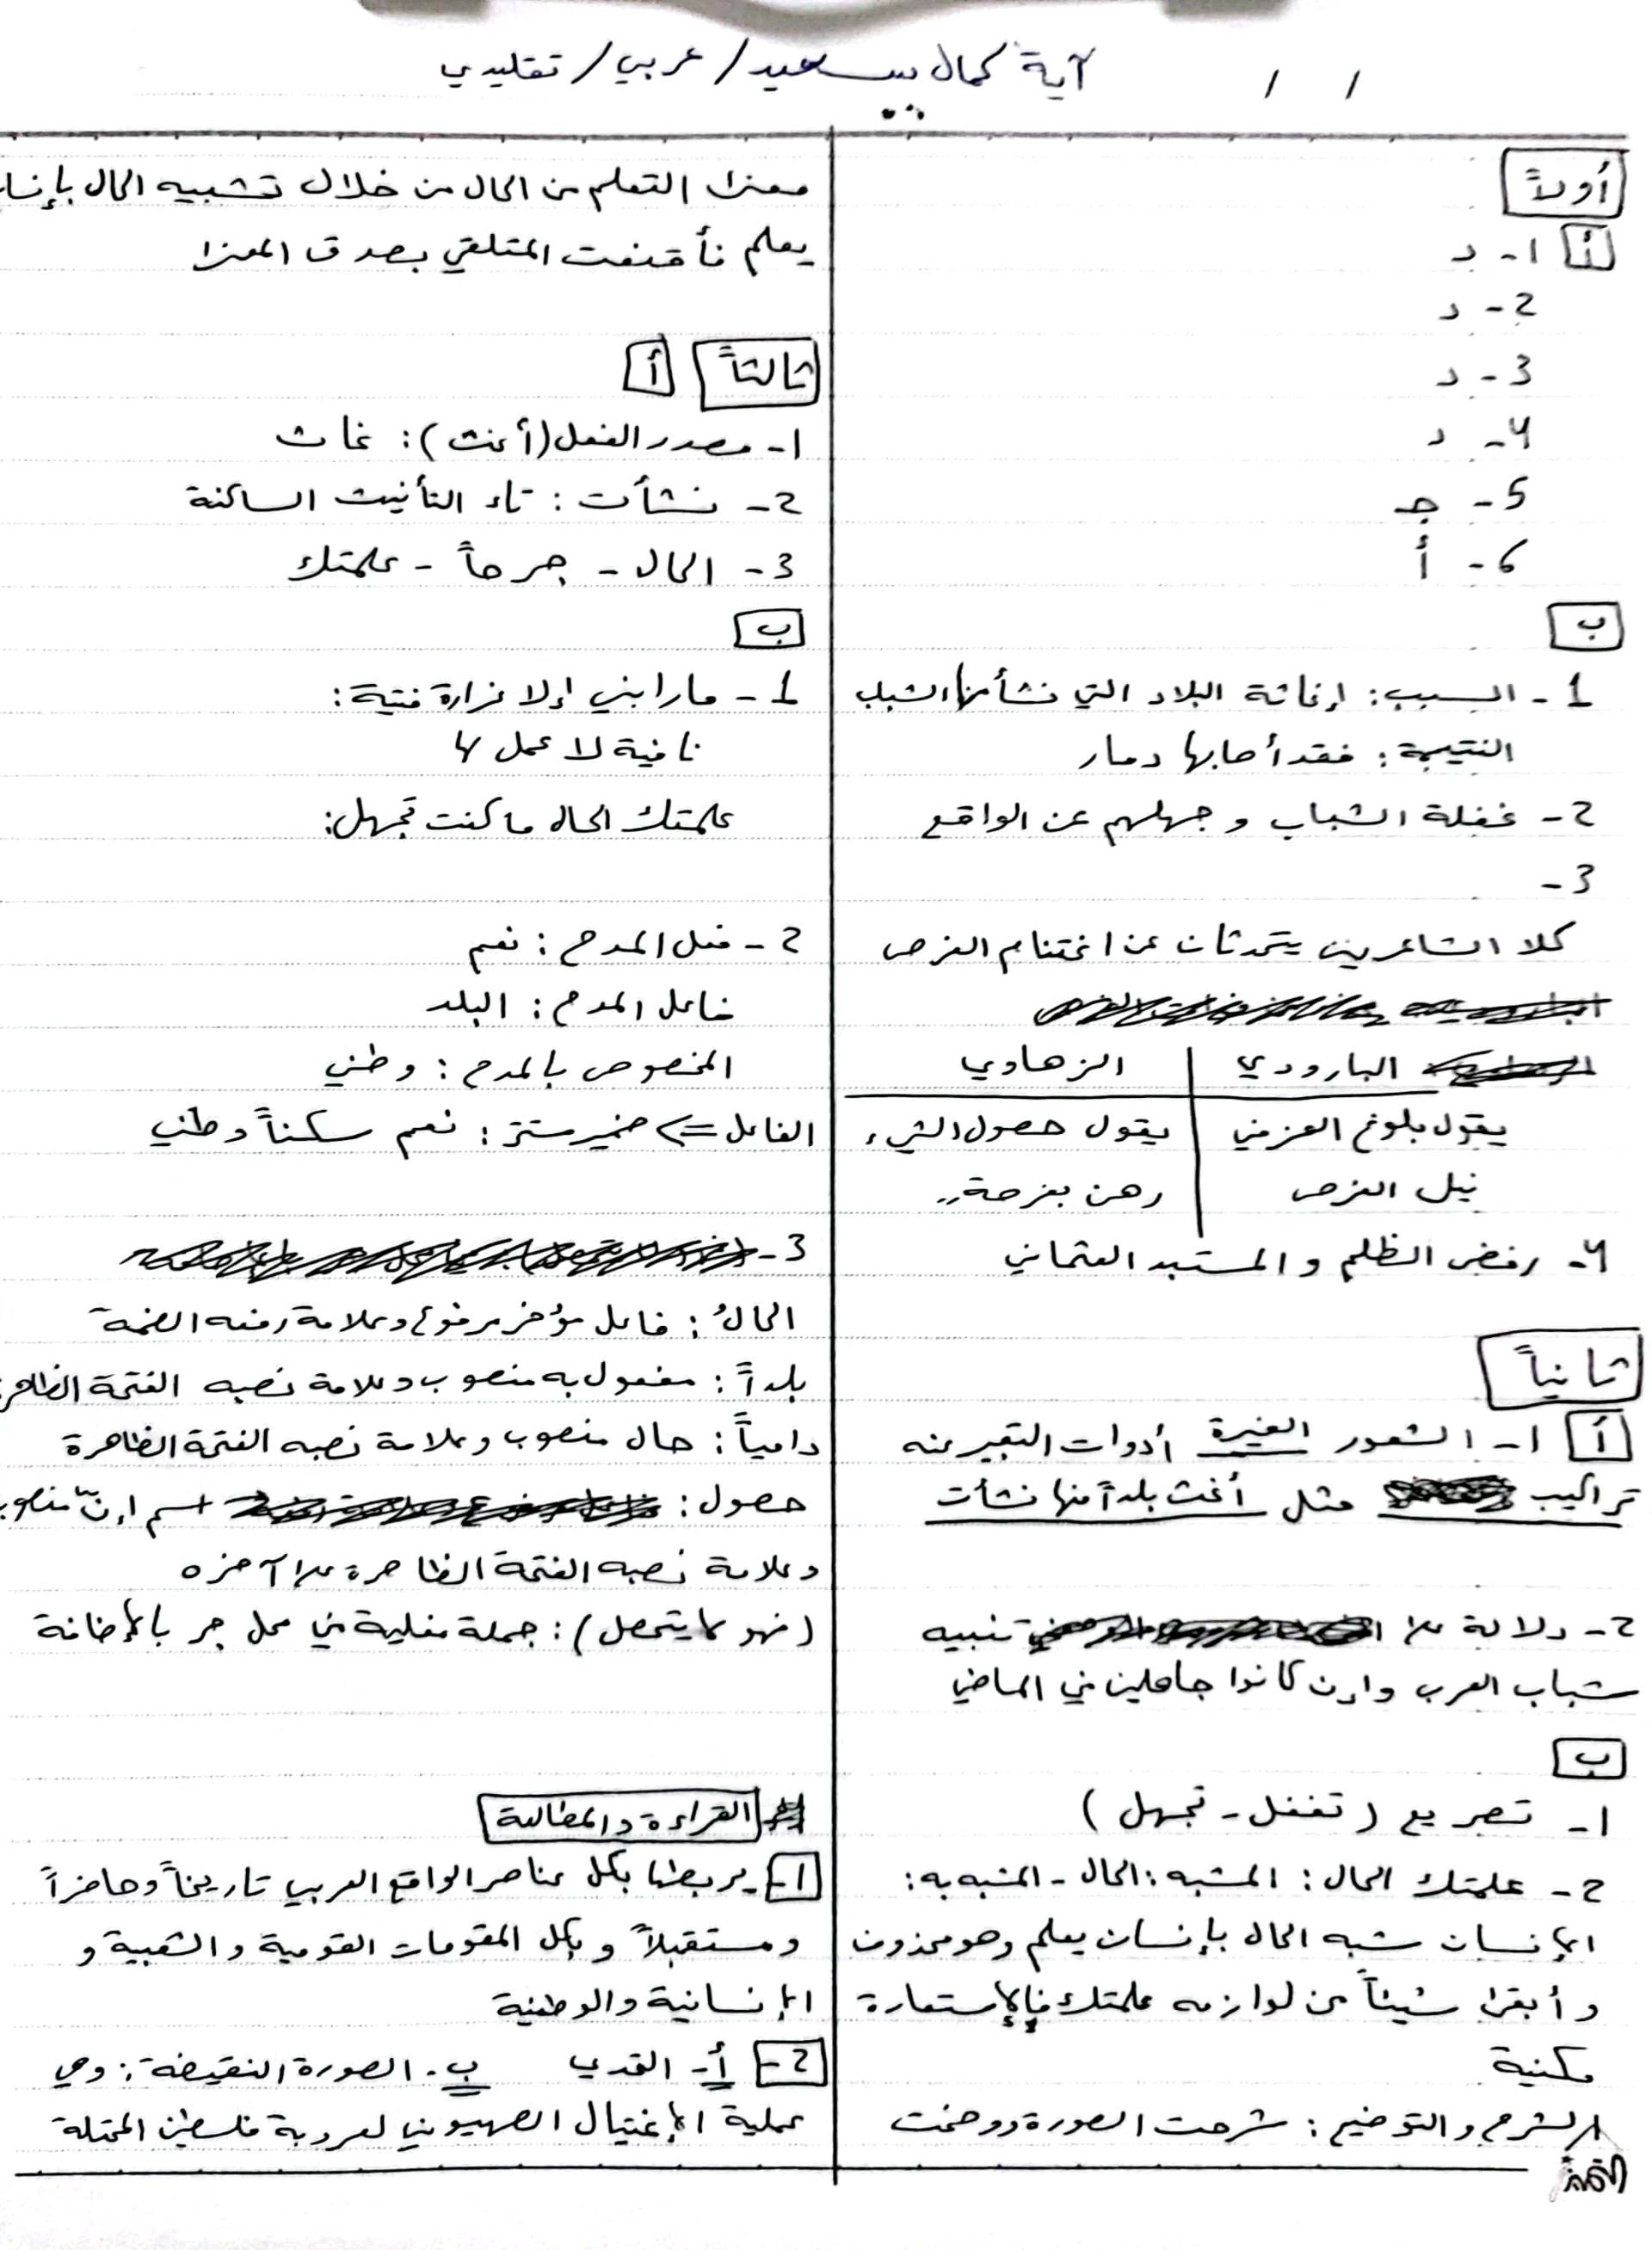 آية كمال سعيد / عربي / تقليدي
/ /
أولاً
أ 1- د
2- د
3- د
4- د
5- جـ
6- أ
ب
1- السبب: إغاثة البلاد التي نشأ منها الشباب
النتيجة: فقد أصابها دمار
2- غفلة الشباب وجهلهم عن الواقع
3-
كلا الشاعرين يتحدثان عن اغتنام الفرص
البارودي | الزهاوي
يقول بلوغ العز في | يقول حصول الشيء
نيل الفرص | رهن بفرصة..
4- رفض الظلم والمستبد العثماني
ثانياً
أ 1- الشعور الغيرة أدوات التعبير عنه
تراكيب مثل أغث بلداً منها نشأت
2- دلالة على تنبيه
شباب العرب وإن كانوا جاهلين في الماضي
ب
1- تصريع (تغفل - تجهل)
2- علمتك الحال: المشبه: الحال - المشبه به:
الإنسان شبه الحال بإنسان يعلم وهو محذوف
وأبقى شيئاً من لوازمه علمتك فالإستعارة
مكنية
الشرح والتوضيح: شرحت الصورة ووضحت
معنى التعلم من الحال من خلال تشبيه الحال
يعلم فأقنعت المتلقي بصدق المعنى
ثالثاً أ
1- مصدر الفعل (أغث): غاث
2- نشأت: تاء التأنيث الساكنة
3- الحال - جرحاً - علمتك
ب
1- ما رابني إلا غرارة فتية:
نافية لا عمل لها
علمتك الحال ما كنت تجهل:
2- فعل المدح: نعم
فاعل المدح: البلد
المخصوص بالمدح: وطني
الفاعل => ضمير مستتر: نعم سكناً وطني
3-
الحالُ: فاعل مؤخر مرفوع وعلامة رفعه الضمة
بلداً: مفعول به منصوب وعلامة نصبه الفتحة
دامياً: حال منصوب وعلامة نصبه الفتحة الظاهرة
حصول: اسم إنّ
وعلامة نصبه الفتحة الظاهرة على آخره
(فهو لا يتحصل): جملة فعلية في محل جر بالإضافة
القراءة والمطالعة
1- يربطها بكل عناصر الواقع العربي تاريخاً وحاضراً
ومستقبلاً وبكل المقومات القومية والشعبية و
الإنسانية والوطنية
2- أ- التحدي ب- الصورة النقيضة: وهي
عملية الإغتيال الصهيوني لعروبة فلسطين المحتلة